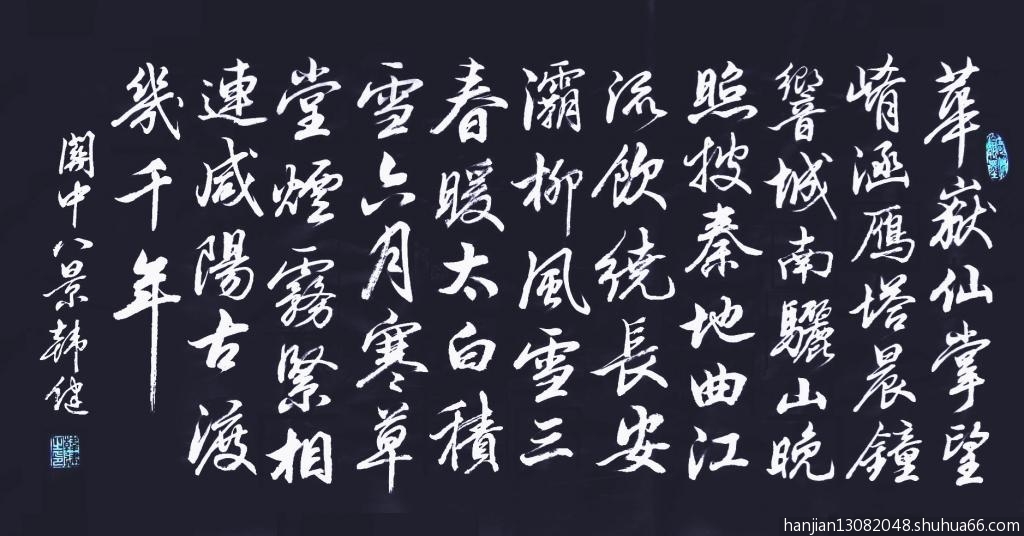 華嶽仙掌望
崤涵鴈塔晨鐘
響城南驪山晚
照披秦地曲江
流飲繞長安
灞柳風雪三
春暖太白積
雪六月寒草
堂煙霧緊相
連咸陽古渡
幾千年
關中八景韓健
hanjian13082048.shuhua66.com